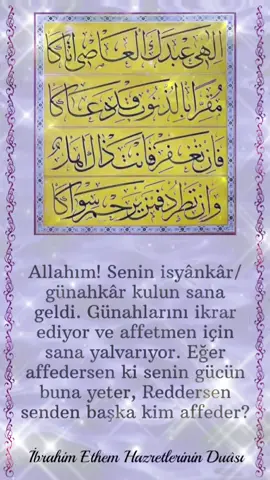 الهي عبدك العاصي اتاكا
مقرا بالذنوب وقد دعاكا
فان تغفر فانت لذاك اهل
وان تطرد فمن يرحم سواكا
Allahım! Senin isyânkâr/
günahkâr kulun sana
geldi. Günahlarını ikrar
ediyor ve affetmen için
sana yalvarıyor. Eğer
affedersen ki senin gücün
buna yeter, Reddersen
senden başka kim affeder?
İbrahim Ethem Hazretlerinin Duâsı